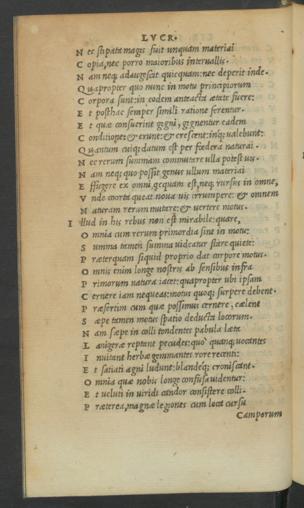 LVCR.
N ec stipata magis fuit unquam materiai
C opia, nec porro maioribus interuallis.
N am neq; adaugescit quicquam: nec deperit inde.
Q uapropter quo nunc in motu principiorum
C orpora sunt: in eodem anteacta ætate fuere:
E t posthac semper simili ratione ferentur.
E t quæ consuerint gigni, gignentur eadem
C onditione: & erunt: & crescent: inq; ualebunt:
Q uantum cuiq; datum est per fœdera naturai.
N ec rerum summam commutare ulla potest uis.
N am neq; quo possit genus ullum materiai
E ffugere ex omni, quicquam est, neq; rursus in omne,
V nde coorta queat noua uis irrumpere: & omnem
N aturam rerum mutare: & uertere motus.
I llud in his rebus non est mirabile: quare,
O mnia cum rerum primordia sint in motu:
S umma tamen summa uideatur stare quiete:
P ræterquam siquid proprio dat corpore motus.
O mnis enim longe nostris ab sensibus infra
P rimorum natura iacet: quapropter ubi ipsam
C ernere iam nequeas: motus quoq; surpere debent.
P ræsertim cum quæ possimus cernere, cælent
S æpe tamen motus spatio deducta locorum.
N am sæpe in colli tondentes pabula læta
L anigeræ reptant pecudes: quo quanq; uocantes
I nuitant herbæ gemmantes rore recenti:
E t satiati agni ludunt: blandeq; coruscant.
O mnia quæ nobis longe confusa uidentur:
E t ueluti in uiridi candor consistere colli.
P ræterea, magnæ legiones cum loca cursu
Camporum